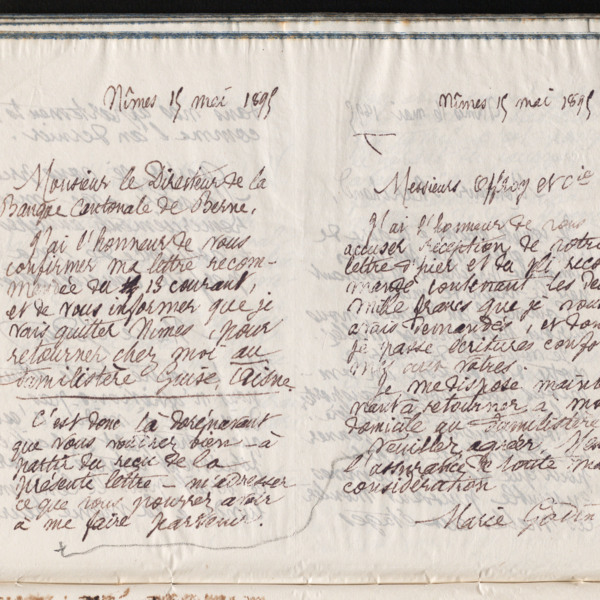 Nîmes 15 mai 1895
Monsieur le Directeur de la
Banque Cantonale de Berne,
J'ai l'honneur de vous
confirmer ma lettre recom-
mandée du 13 courant,
et de vous informer que je
vais quitter Nîmes, pour
retourner chez moi au
Familistère Guise, Aisne.
C'est donc là dorénavant
que vous voudrez bien – à
partir du reçu de la
présente lettre – m'adresser
ce que vous pourrez avoir
à me faire parvenir.
Nîmes 15 mai 1895
Messieurs Offroy et Cie
J'ai l'honneur de vous
accuser réception de votre
lettre d'hier et du pli reco
mandé contenant les de
mille francs que je vous
avais demandés, et don
je passe écritures confo
aux vôtres.
Je me dispose mainte
nant à retourner à mo
domicile au Familistère
Veuillez agréer,
l'assurance de toute ma
considération
Marie Godin